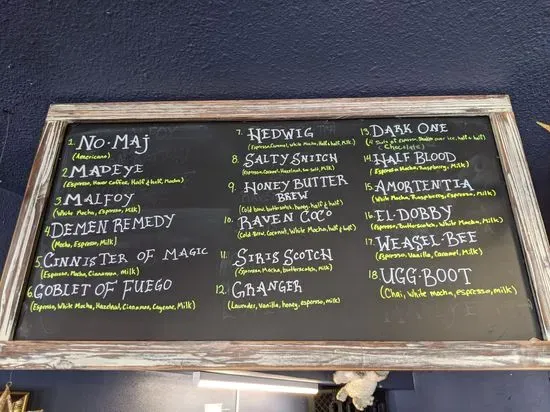 1. NO-MAJ
(Americano)
2. MADEYE
(Espresso, House Coffee, Half & half, Mocha)
3. MALFOY
(White Mocha, Espresso, Milk)
4. DEMEN REMEDY
(Mocha, Espresso, Milk)
5. CINNISTER OF MAGIC
(Espresso, Mocha, Cinnamon, milk)
6. GOBLET OF FUEGO
(Espresso, White Mocha, Hazelnut, Cinnamon, Cayenne, Milk)
7. HEDWIG
(Espresso, Caramel, White Mocha, Half & half, Milk)
8. SALTY SNITCH
(Espresso, Caramel, Hazelnut, Sea Salt, Milk)
9. HONEY BUTTER
BREW
(Cold brew, butterscotch, honey, half & half)
10. RAVEN COCO
(Cold-Brew, Coconut, White Mocha, half & half)
11. SIRIS SCOTCH
(Espresso, Mocha, butterscotch, Milk)
12. GRANGER
(Lavender, Vanilla, honey, espresso, milk)
13. DARK ONE
(4 Shots of espresso, Shaken over ice, half & half)
(Chocolate)
14. HALF BLOOD
(Espresso, Mocha, Raspberry, Milk)
15. AMORTENTIA
(White Mocha, Raspberry, Espresso, Milk)
16. EL-DOBBY
(Espresso, Butterscotch, White Mocha, Milk)
17. WEASEL-BEE
(Espresso, Vanilla, Caramel, Milk)
18. UGG-BOOT
(Chai, White mocha, espresso, milk)